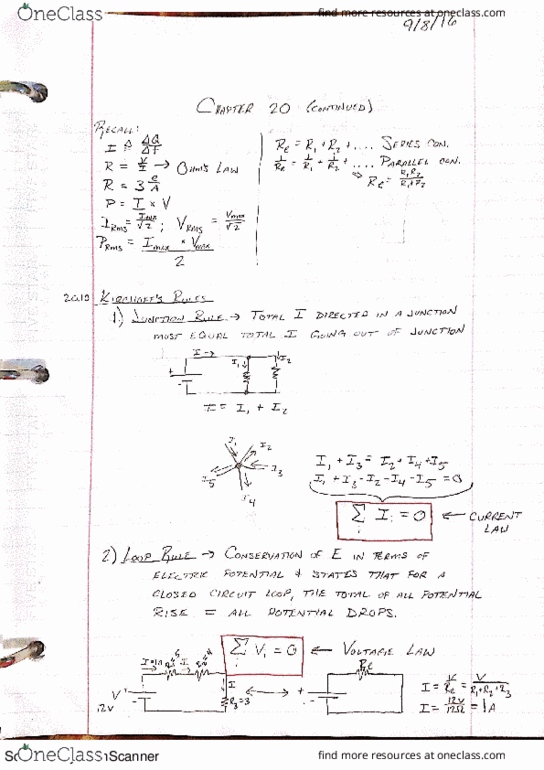 OneClass
find more resources at oneclass.com
9/8/16
CHAPTER 20 (CONTINUED)
RECALL:
I ≙ ΔQ/ΔT
R = V/I → OHM'S LAW
R = 3 e/A
P = I × V
I_RMS = I_max/√2 ; V_RMS = V_max/√2
P_RMS = I_max × V_max / 2
R_E = R_1 + R_2 + .... SERIES CON.
1/R_E = 1/R_1 + 1/R_2 + .... PARALLEL CON.
R_E = R_1R_2/R_1+R_2
20.10 KIRCHHOFF'S RULES
1) JUNCTION RULE → TOTAL I DIRECTED IN A JUNCTION
MOST EQUAL TOTAL I GOING OUT OF JUNCTION
I →
I_1 I_2
+
-
I = I_1 + I_2
I_1 I_2
I_3
I_5
I_4
I_1 + I_3 = I_2 + I_4 + I_5
I_1 + I_3 - I_2 - I_4 - I_5 = 0
∑ I_i = 0 ← CURRENT
LAW
2) LOOP RULE → CONSERVATION OF E IN TERMS OF
ELECTRIC POTENTIAL & STATES THAT FOR A
CLOSED CIRCUIT LOOP, THE TOTAL OF ALL POTENTIAL
RISE = ALL POTENTIAL DROPS.
∑ V_i = 0 ← VOLTAGE LAW
I
I
R_3 = 3
V
12V
+
-
R_E
I = V/R_E = V/R_1+R_2+R_3
I = 12V/12Ω = 1A
OneClass
Scanner
find more resources at oneclass.com